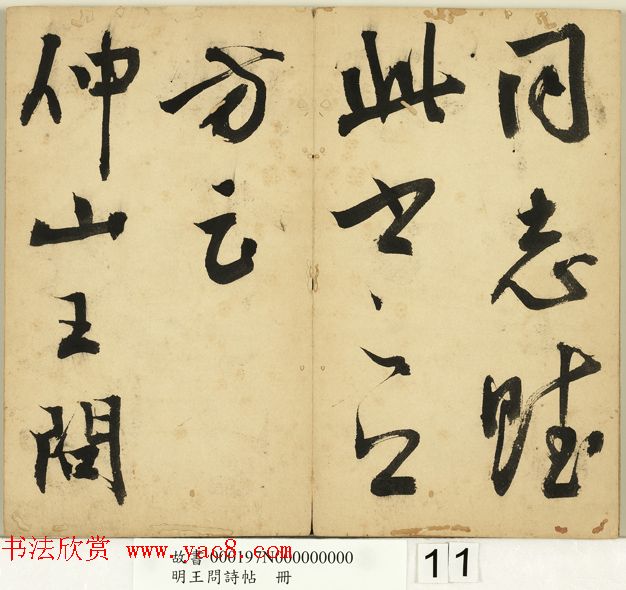 同志賦
此
方云
仲山王問
书法欣赏 www.yac8.com
故書 000197N000000000
明王問詩帖 冊
11